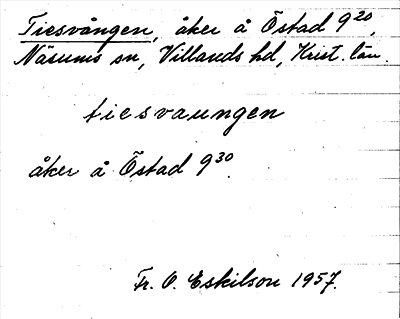 Tiesvången, åker å Östad 9²⁰,
Näsums sn, Villands hd, Krist. län.
tiesvaungen
åker å Östad 9³⁰.
Fr. O. Eskilson 1957.